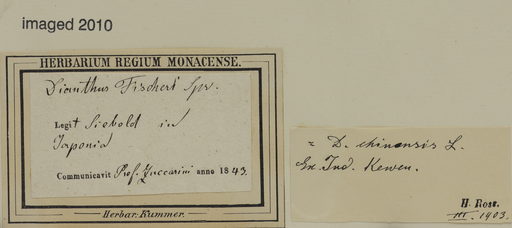 imaged 2010
HERBARIUM REGIUM MONACENSE.
Dianthus Fischeri Spr.
Legit Siebold in
Japonia
Communicavit Prof. Zuccarini anno 1843.
Herbar. Kummer.
= D. chinensis L.
Ex Ind. Kewen.
H. Ross.
III. 1903.